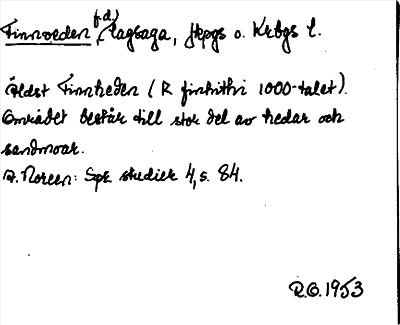 Finnveden, f.d. lagsaga, Jkpgs o. Krbgs l.
Äldst Finnheden (R finhithi 1000-talet).
Området består till stor del av hedar och
sandmoar.
A. Noreen: Spr. studier 4, s. 84.
R.G. 1953